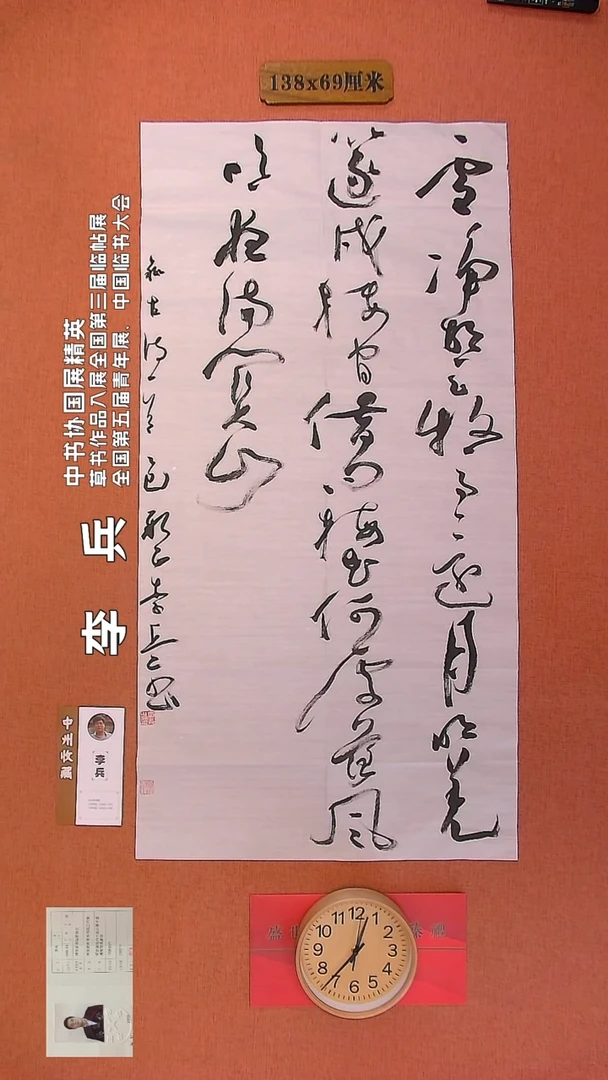 138x69厘米
雪净胡天牧马还月明羌
篴戍楼间借问梅花何处落风
吹一夜满关山
古诗一首
李兵书
中书协国展精英
草书作品入展全国第三届临帖展
全国第五届青年展、中国临书大会
李 兵
李兵
12 1 2 3 4 5 6 7 8 9 10 11